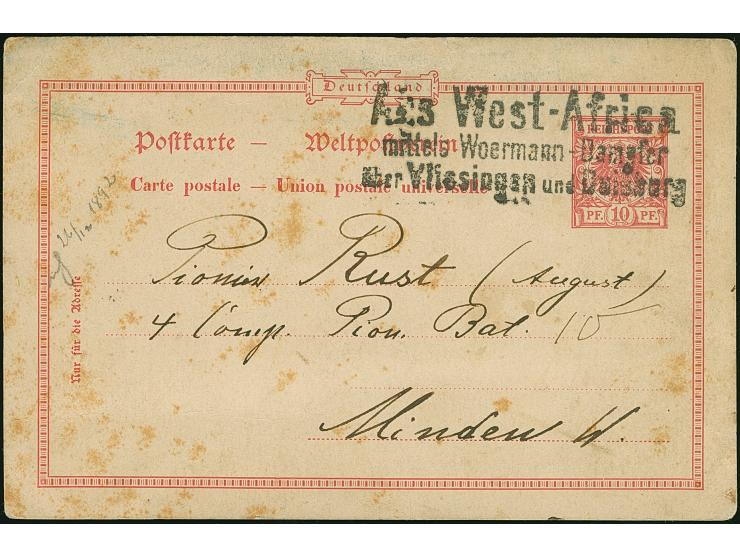 Deutschland
Aus West-Africa
REICHSPOST
Postkarte — Weltpostverein
mittels Woermann-Dampfer
Carte postale — Union postale universelle
über Vlissingen und Duisburg
PF. 10 PF.
26/12 1892
Nur für die Adresse
Pionier Rust (August)
4 Comp. Pion. Bat. 10
Minden W.